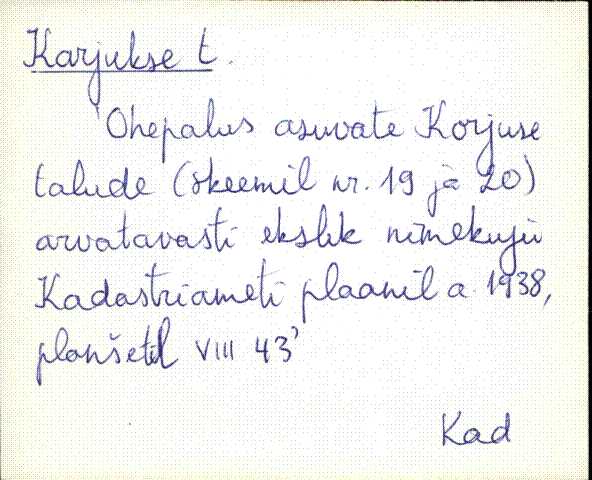 Karjukse t.
'Ohepalus asuvate Korjuse
talude (skeemil nr. 19 ja 20)
arvatavasti ekslik nimekuju
Kadastriameti plaanil a 1938,
planšetil VIII 43'
Kad